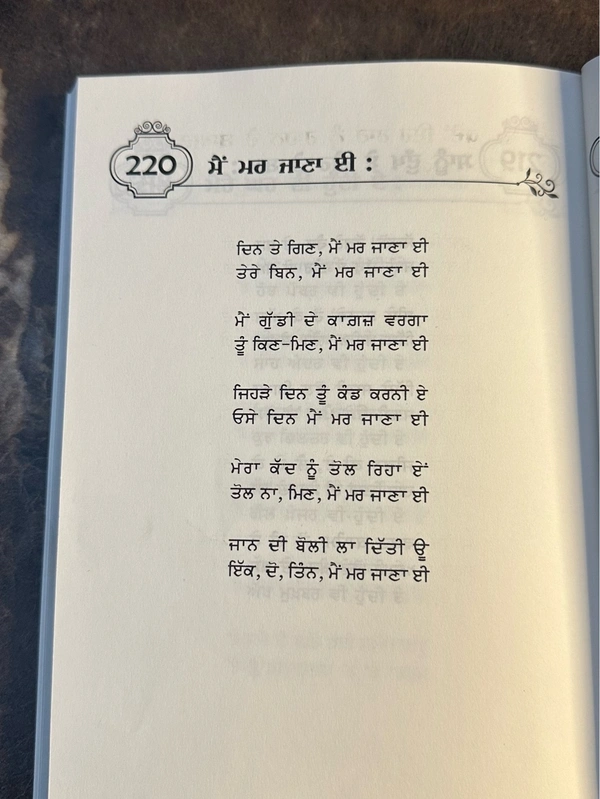 220 ਮੈਂ ਮਰ ਜਾਣਾ ਈ :
ਦਿਨ ਤੇ ਗਿਣ, ਮੈਂ ਮਰ ਜਾਣਾ ਈ
ਤੇਰੇ ਬਿਨ, ਮੈਂ ਮਰ ਜਾਣਾ ਈ
ਮੈਂ ਗੁੱਡੀ ਦੇ ਕਾਗ਼ਜ਼ ਵਰਗਾ
ਤੂੰ ਕਿਣ-ਮਿਣ, ਮੈਂ ਮਰ ਜਾਣਾ ਈ
ਜਿਹੜੇ ਦਿਨ ਤੂੰ ਕੰਡ ਕਰਨੀ ਏ
ਓਸੇ ਦਿਨ ਮੈਂ ਮਰ ਜਾਣਾ ਈ
ਮੇਰਾ ਕੱਦ ਨੂੰ ਤੋਲ ਰਿਹਾ ਏਂ
ਤੋਲ ਨਾ, ਮਿਣ, ਮੈਂ ਮਰ ਜਾਣਾ ਈ
ਜਾਨ ਦੀ ਬੋਲੀ ਲਾ ਦਿੱਤੀ ਊ
ਇੱਕ, ਦੋ, ਤਿੰਨ, ਮੈਂ ਮਰ ਜਾਣਾ ਈ